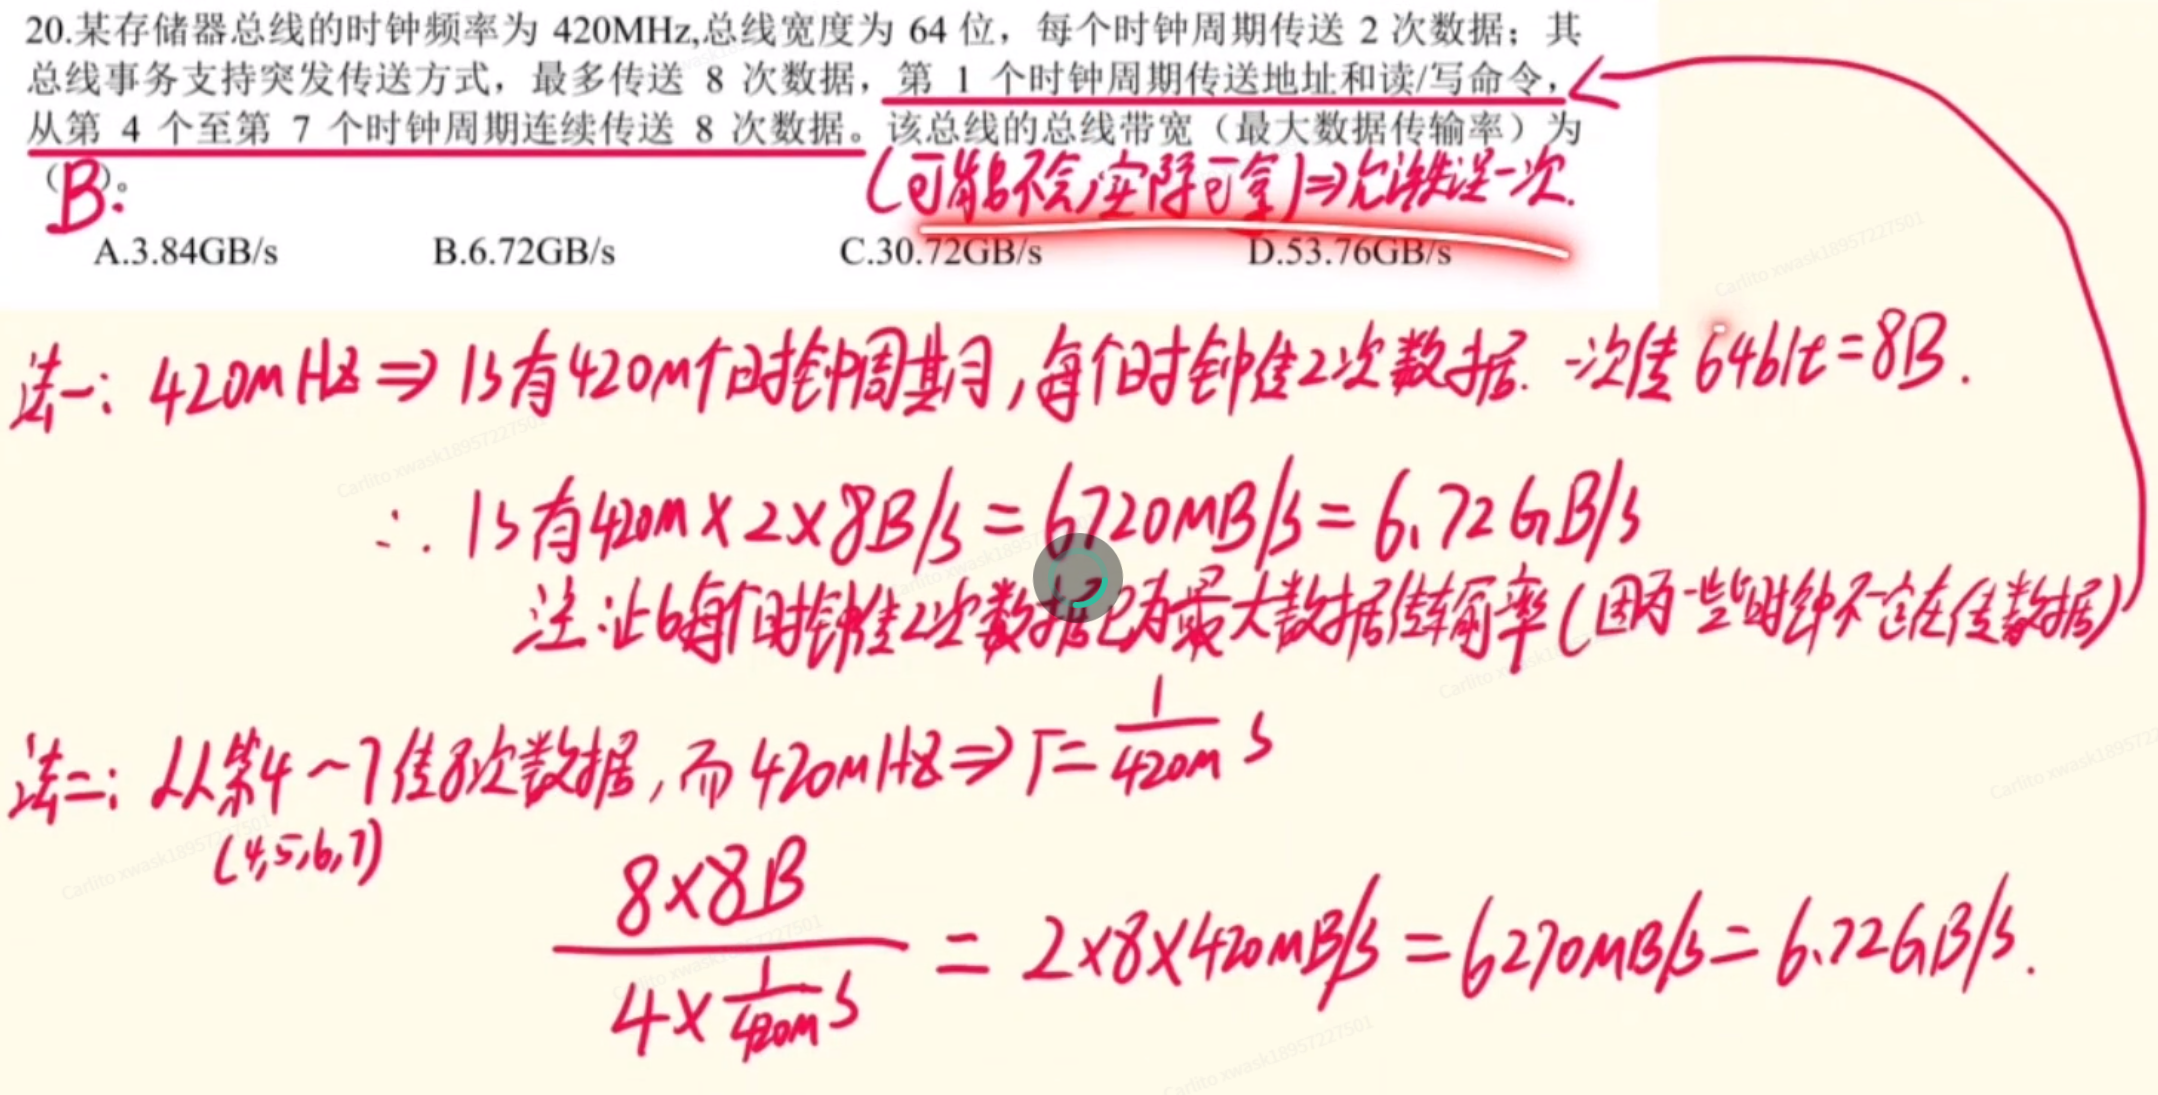 20.某存储器总线的时钟频率为 420MHz,总线宽度为 64 位，每个时钟周期传送 2 次数据；其
总线事务支持突发传送方式，最多传送 8 次数据，第 1 个时钟周期传送地址和读/写命令，
从第 4 个至第 7 个时钟周期连续传送 8 次数据。该总线的总线带宽（最大数据传输率）为
（B）。
(可能不会,实际可拿)⇒允许错误一次.
A.3.84GB/s B.6.72GB/s C.30.72GB/s D.53.76GB/s
法一: 420MHz ⇒ 1s有420M个时钟周期,每个时钟传2次数据. 一次传 64bit=8B.
∴ 1s有420M×2×8B/s = 6720MB/s = 6.72GB/s
注:让每个时钟传2次数据已为最大数据传输率(因为一些时钟不一定在传数据)
法二: 从第4～7传8次数据,而420MHz ⇒ T= 1/420M s
(4,5,6,7)
8×8B / 4×1/420M s = 2×8×420MB/s = 6270MB/s = 6.72GB/s.